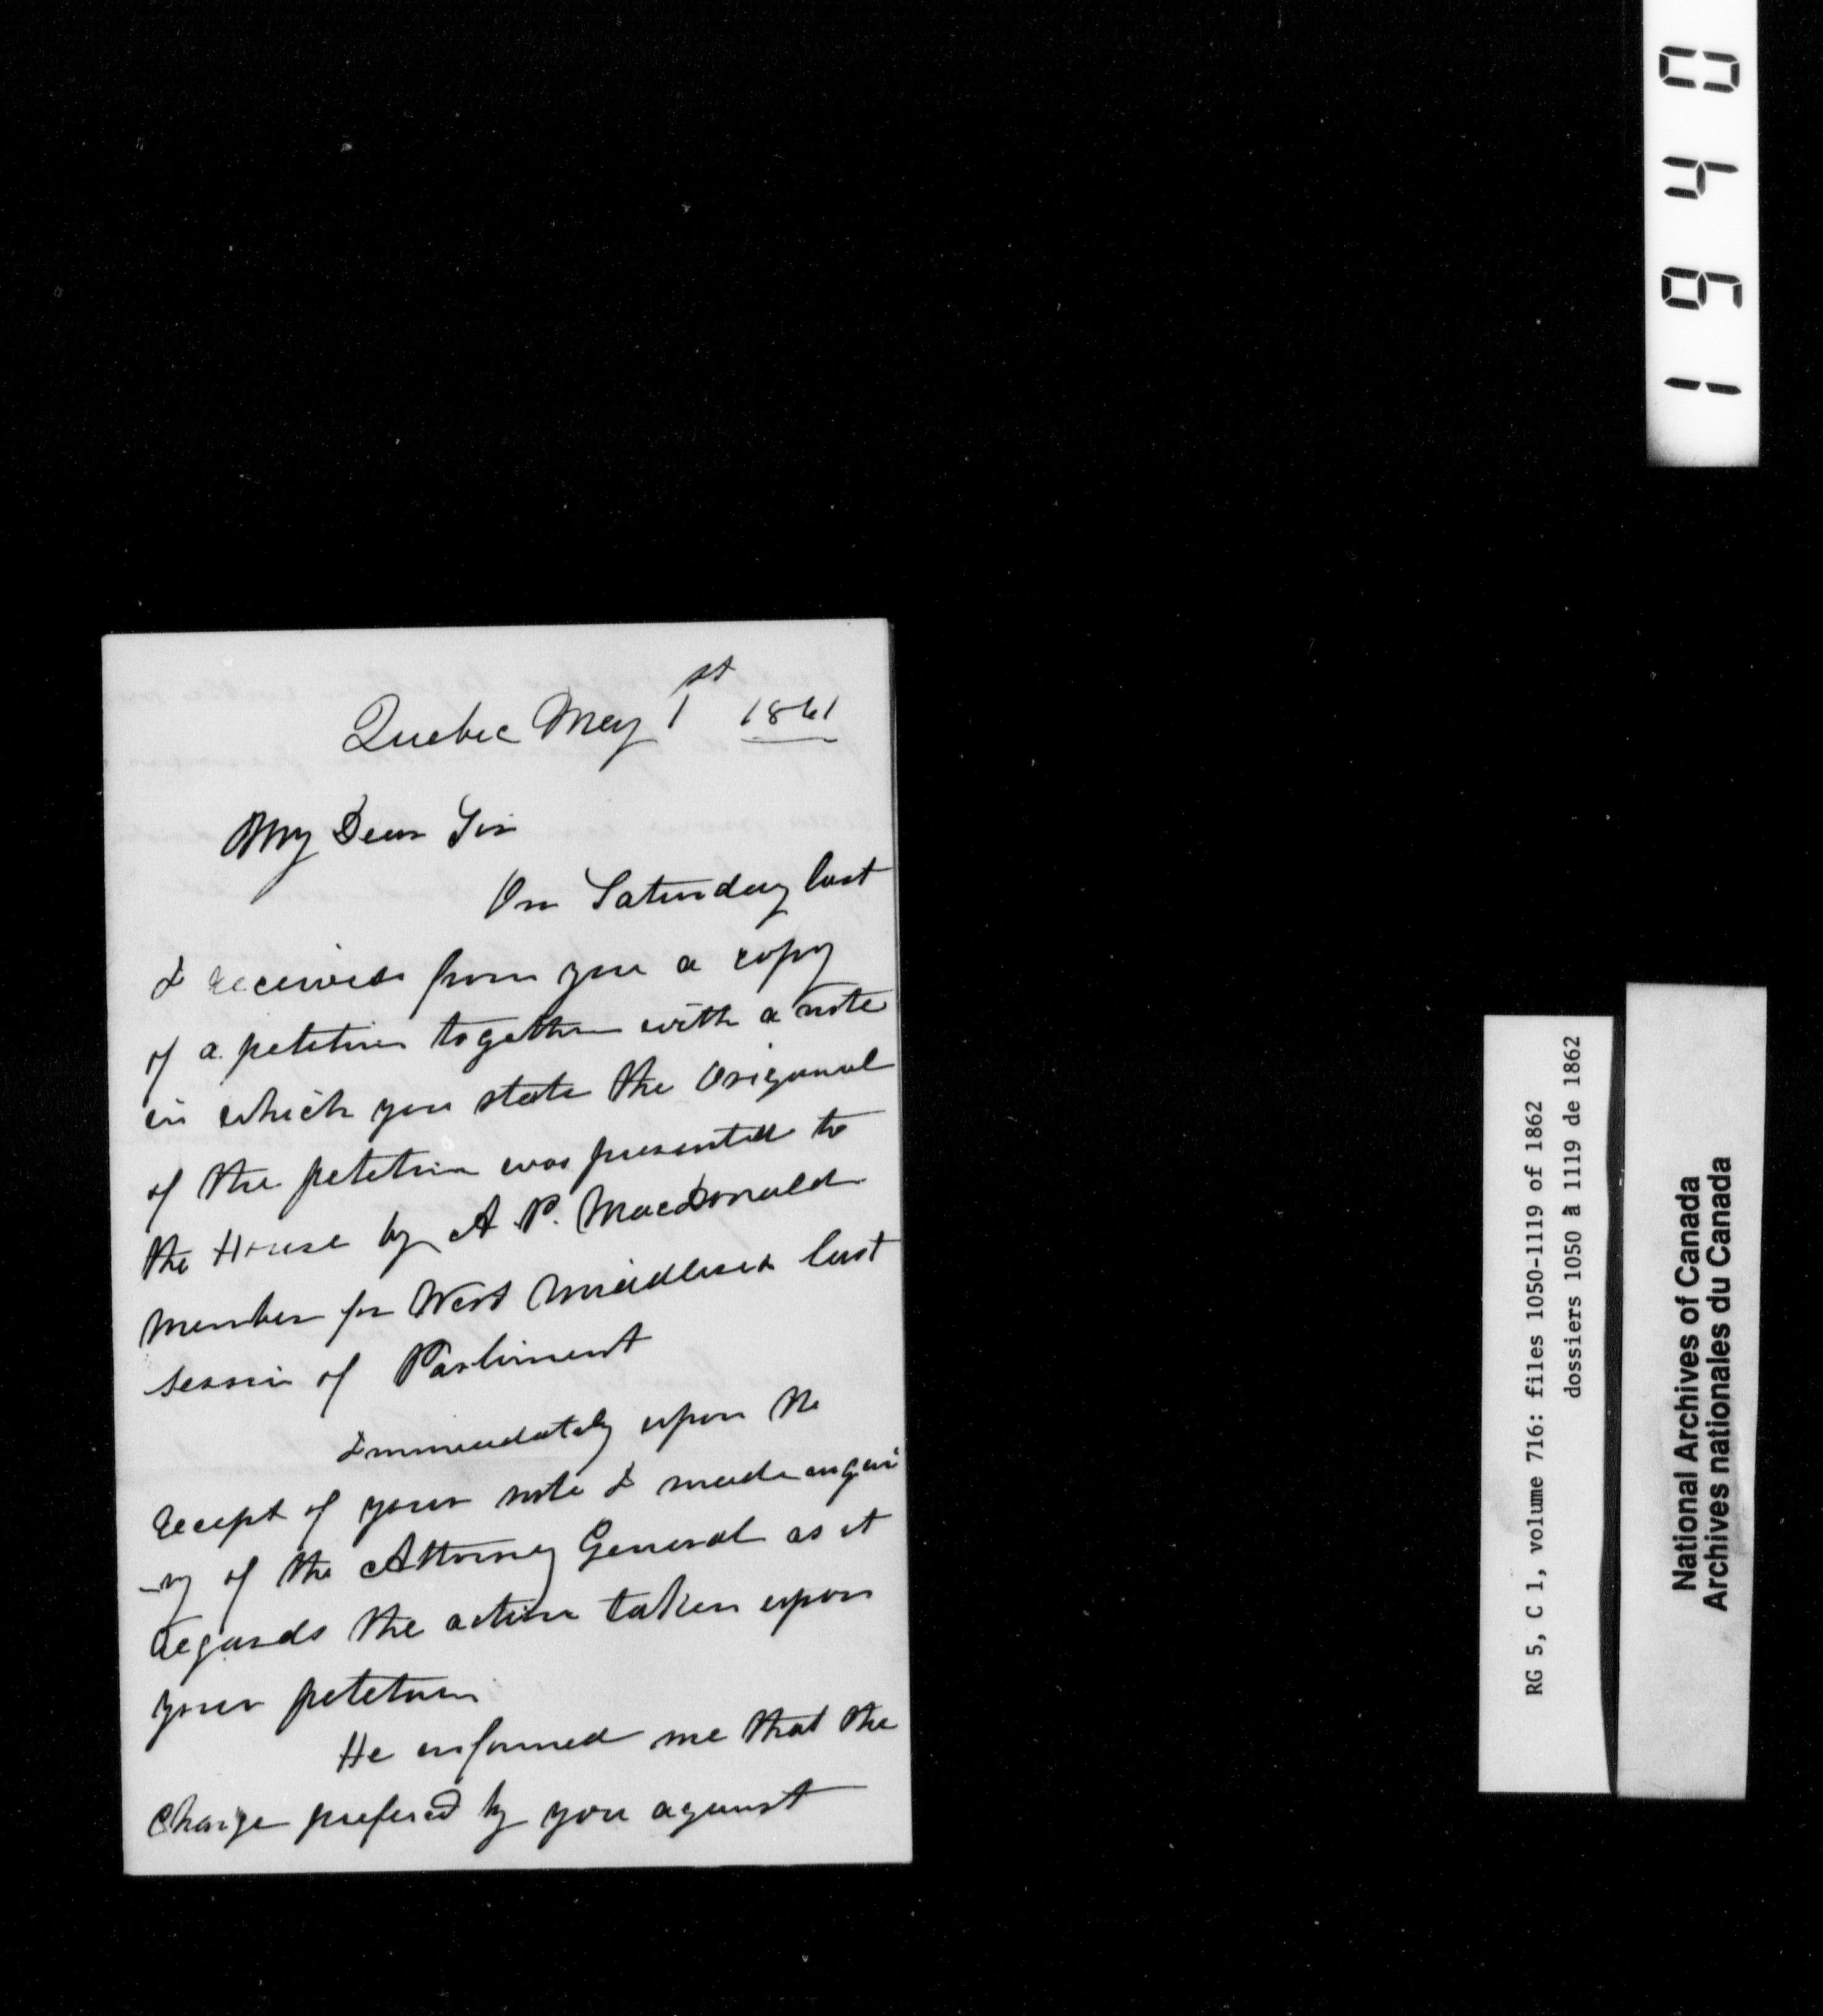 Quebec May 1st 1861
My Dear Sir
On Saturday last
I received from you a copy
of a petetion together with a note
in which you state the Origanal
of the petetion was presented to
the House by A. P. MacDonald
member for West Middlesex last
session of Parliment
Immeadately upon the
receipt of your note I made enqui
-ry of the Attorney General as it
regards the action taken upon
your petetion
He informed me that the
Charge prefered by you against
1940
RG 5, C 1, volume 716: files 1050-1119 of 1862
dossiers 1050 à 1119 de 1862
National Archives of Canada
Archives nationales du Canada